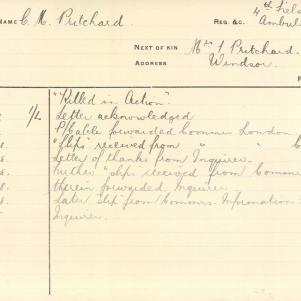 NAME C. M. Pritchard. REG. &C. 4th Field
Ambul
NEXT OF KIN Mrs L Pritchard.
ADDRESS Windsor.
"Killed in Action".
1/2 Letter acknowledged
forwarded Commrs London
"slip" received from " " C
Letter of thanks from Inquirer.
Further "slip" received from Comm
therein forwarded Inquirer
Later slip from Commrs. Information
Inquirer.